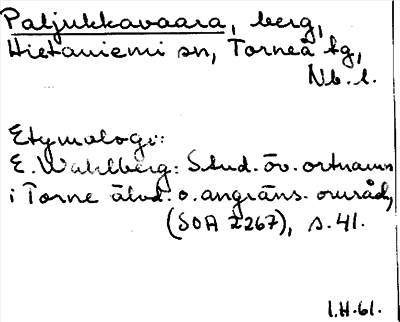 Paljukkavaara, berg,
Hietaniemi sn, Torneå tg,
Nb. l.
Etymologi:
E. Wahlberg: Stud. öv. ortnamn
i Torne älvd. o. angräns. område,
(SOA 2267), s. 41.
I.H. 61.